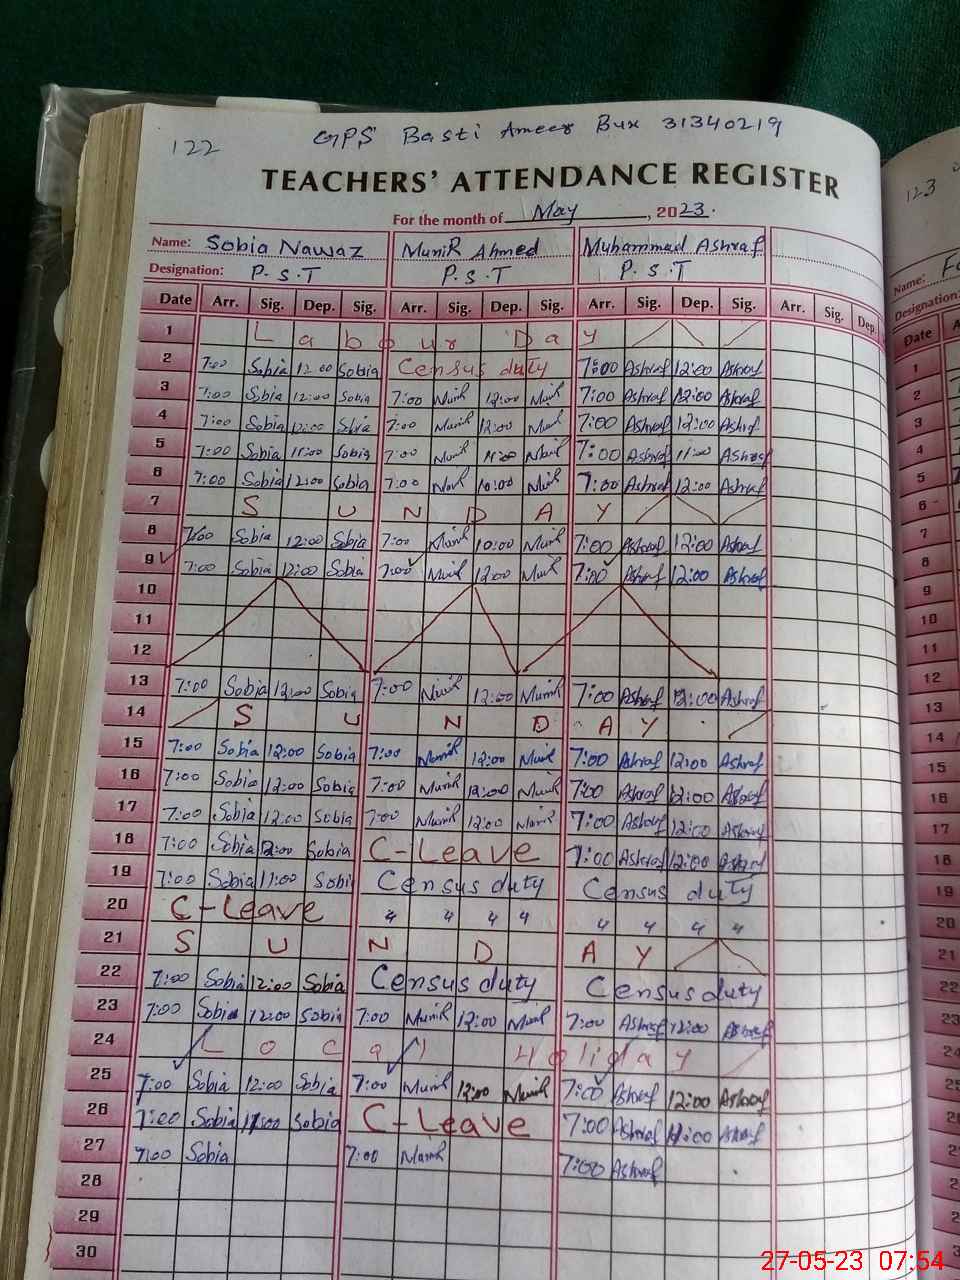 122 GPS Basti Ameer Bux 31340219
TEACHERS' ATTENDANCE REGISTER
For the month of May, 2023.
Name: Sobia Nawaz Munir Ahmed Muhammad Ashraf
Designation: P.S.T P.S.T P.S.T
Date Arr. Sig. Dep. Sig. Arr. Sig. Dep. Sig. Arr. Sig. Dep. Sig. Arr. Sig. Dep.
1 Labour Day
2 7:00 Sobia 12:00 Sobia Census duty 7:00 Ashraf 12:00 Ashraf
3 7:00 Sobia 12:00 Sobia 7:00 Munir 12:00 Munir 7:00 Ashraf 12:00 Ashraf
4 7:00 Sobia 12:00 Sobia 7:00 Munir 12:00 Munir 7:00 Ashraf 12:00 Ashraf
5 7:00 Sobia 11:00 Sobia 7:00 Munir 11:00 Munir 7:00 Ashraf 11:00 Ashraf
6 7:00 Sobia 12:00 Sobia 7:00 Munir 10:00 Munir 7:00 Ashraf 12:00 Ashraf
7 SUNDAY
8 7:00 Sobia 12:00 Sobia 7:00 Munir 10:00 Munir 7:00 Ashraf 12:00 Ashraf
9 7:00 Sobia 12:00 Sobia 7:00 Munir 12:00 Munir 7:00 Ashraf 12:00 Ashraf
10
11
12
13 7:00 Sobia 12:00 Sobia 7:00 Munir 12:00 Munir 7:00 Ashraf 12:00 Ashraf
14 SUNDAY
15 7:00 Sobia 12:00 Sobia 7:00 Munir 12:00 Munir 7:00 Ashraf 12:00 Ashraf
16 7:00 Sobia 12:00 Sobia 7:00 Munir 12:00 Munir 7:00 Ashraf 12:00 Ashraf
17 7:00 Sobia 12:00 Sobia 7:00 Munir 12:00 Munir 7:00 Ashraf 12:00 Ashraf
18 7:00 Sobia 12:00 Sobia C-Leave 7:00 Ashraf 12:00 Ashraf
19 7:00 Sobia 11:00 Sobia Census duty Census duty
20 C-Leave 4 4 4 4 4 4 4 4
21 SUNDAY
22 7:00 Sobia 12:00 Sobia Census duty Census duty
23 7:00 Sobia 12:00 Sobia 7:00 Munir 12:00 Munir 7:00 Ashraf 12:00 Ashraf
24 Local Holiday
25 7:00 Sobia 12:00 Sobia 7:00 Munir 12:00 Munir 7:00 Ashraf 12:00 Ashraf
26 7:00 Sobia 11:00 Sobia C-Leave 7:00 Ashraf 11:00 Ashraf
27 7:00 Sobia 7:00 Munir 7:00 Ashraf
28
29
30
123
Name:
Designation:
Date
1
2
3
4
5
6
7
8
9
10
11
12
13
14
15
16
17
18
19
20
21
22
23
24
25
27-05-23 07:54